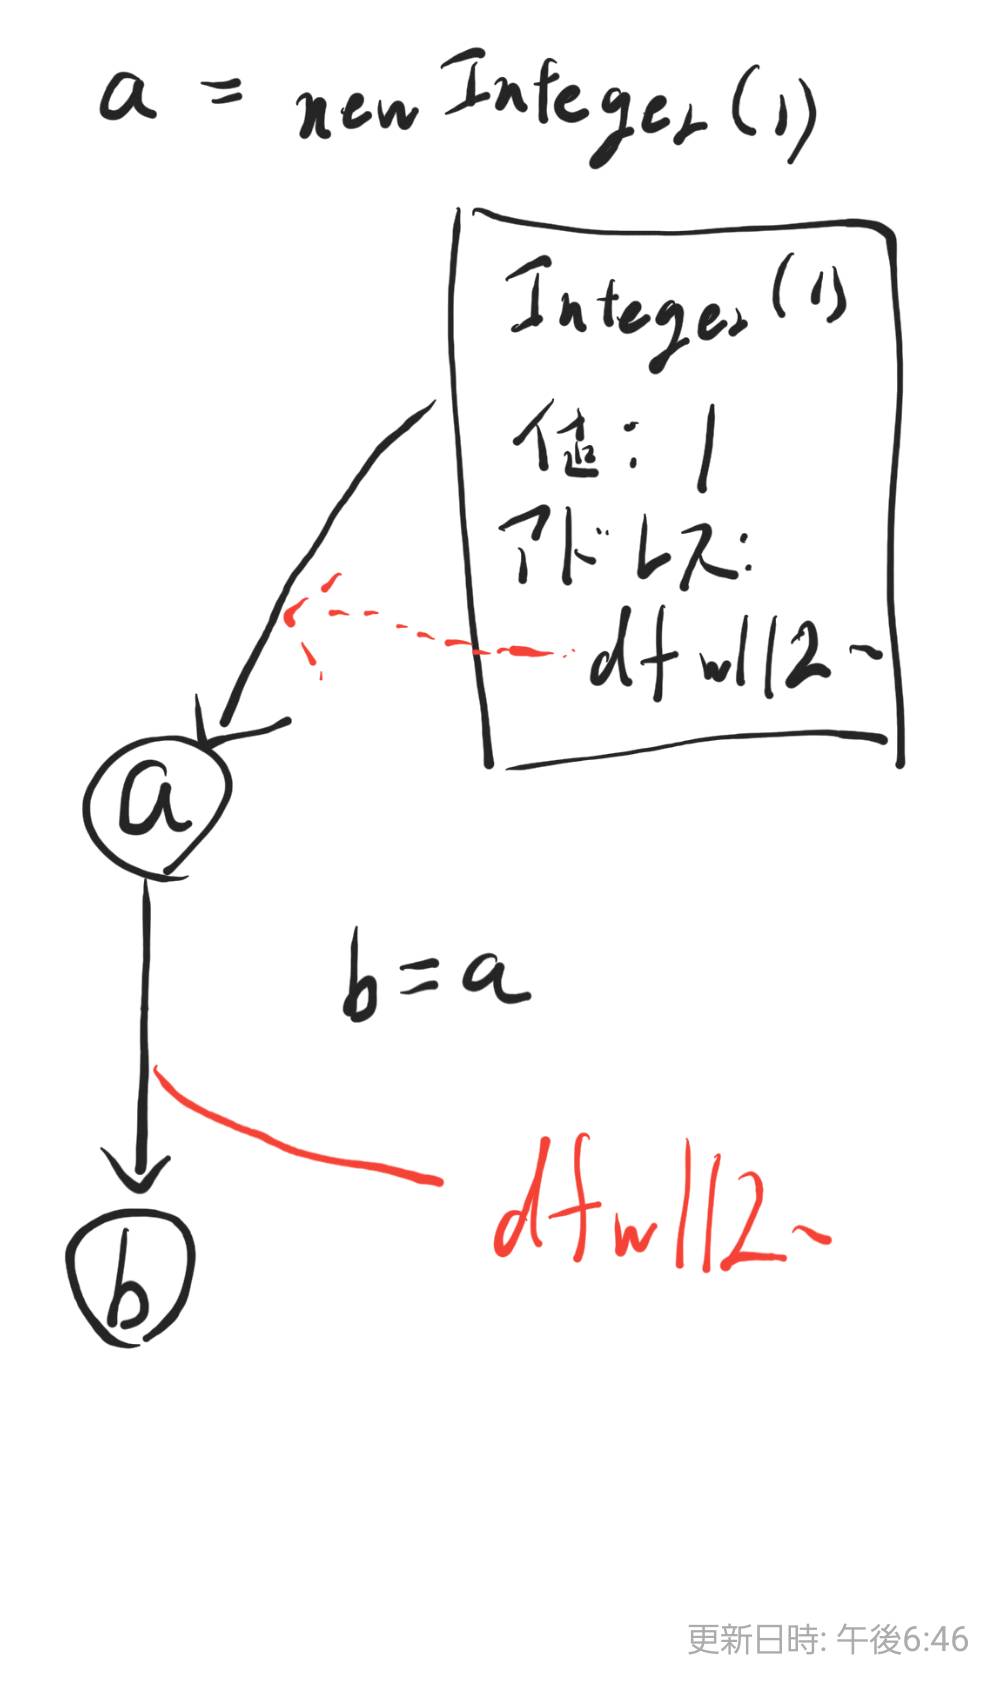 a = new Integer(1)
Integer(1)
値: 1
アドレス:
dfw112~
a
b=a
dfw112~
b
更新日時: 午後6:46